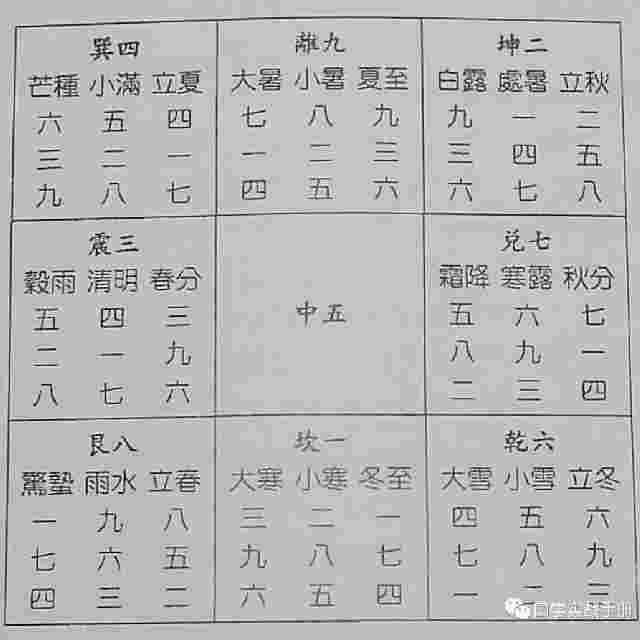 巽四
芒種 小滿 立夏
六 五 四
三 二 一
九 八 七
離九
大暑 小暑 夏至
七 八 九
一 二 三
四 五 六
坤二
白露 處暑 立秋
九 一 二
三 四 五
六 七 八
震三
穀雨 清明 春分
五 四 三
二 一 九
八 七 六
中五
兌七
霜降 寒露 秋分
五 六 七
八 九 一
二 三 四
艮八
驚蟄 雨水 立春
一 九 八
七 六 五
四 三 二
坎一
大寒 小寒 冬至
三 二 一
九 八 七
六 五 四
乾六
大雪 小雪 立冬
四 五 六
七 八 九
一 二 三